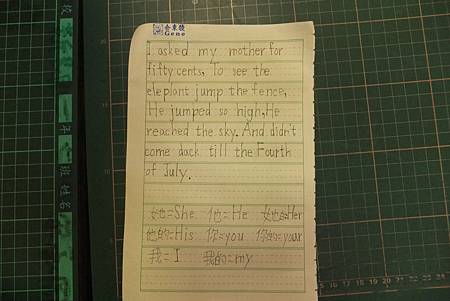 Gene
I asked my mother for
fifty cents, To see the
eleplont jump the fence,
He jumped so high,He
reached the sky. And didn't
come dack till the Fourth
of July.
她=She 他=He 她的=Her
他的=His 你=you 你的=your
我=I 我的=my
年
班 姓名
15 16 17 18 19 20 21 22 23 24